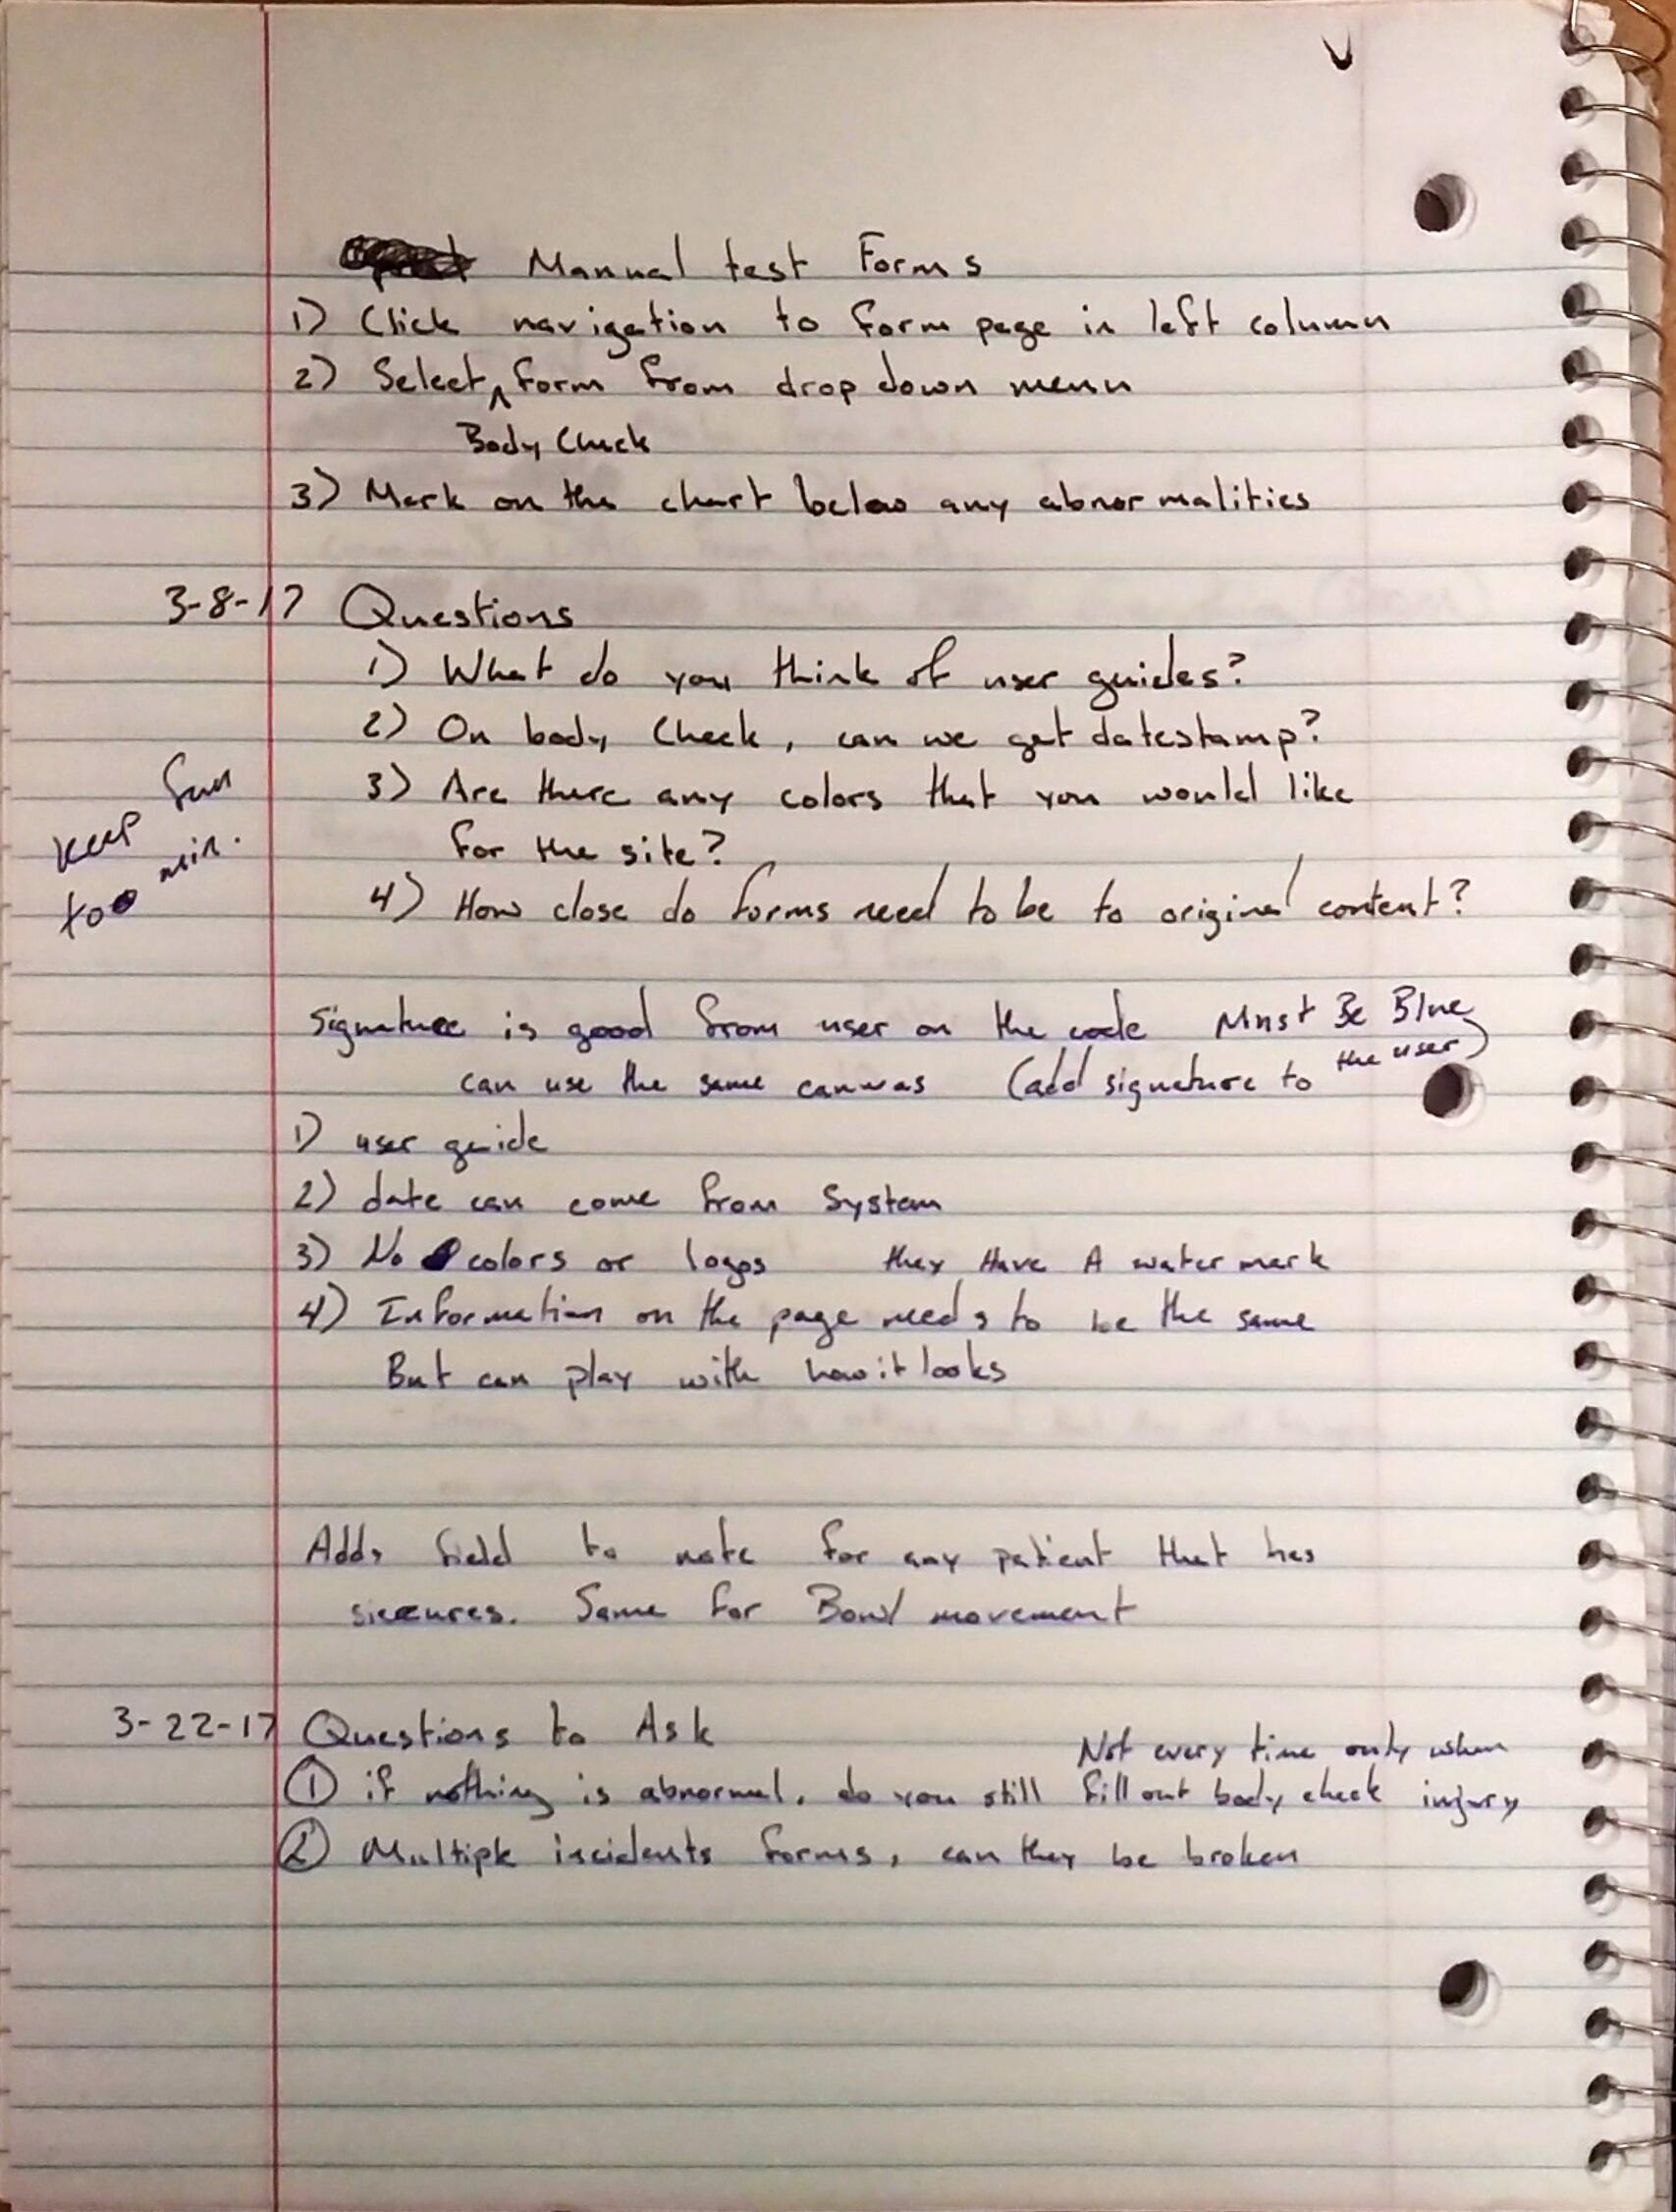 Manual test Forms
1) Click navigation to form page in left column
2) Select ^ form from drop down menu
Body Check
3) Mark on the chart below any abnormalities
3-8-17 Questions
1) What do you think of user guides?
2) On body Check, can we get datestamp?
3) Are there any colors that you would like
for the site?
4) How close do forms need to be to original content?
keep fun
too min.
signature is good from user on the code Must Be Blue
can use the same canvas (add signature to the user)
1) user guide
2) date can come from system
3) No colors or logos they Have A water mark
4) Information on the page needs to be the same
But can play with how it looks
Adds field to note for any patient that has
siezures. Same for Bowl movement
3-22-17 Questions to Ask
Not every time only when
① if nothing is abnormal, do you still fill out body check injury
② Multiple incidents forms, can they be broken